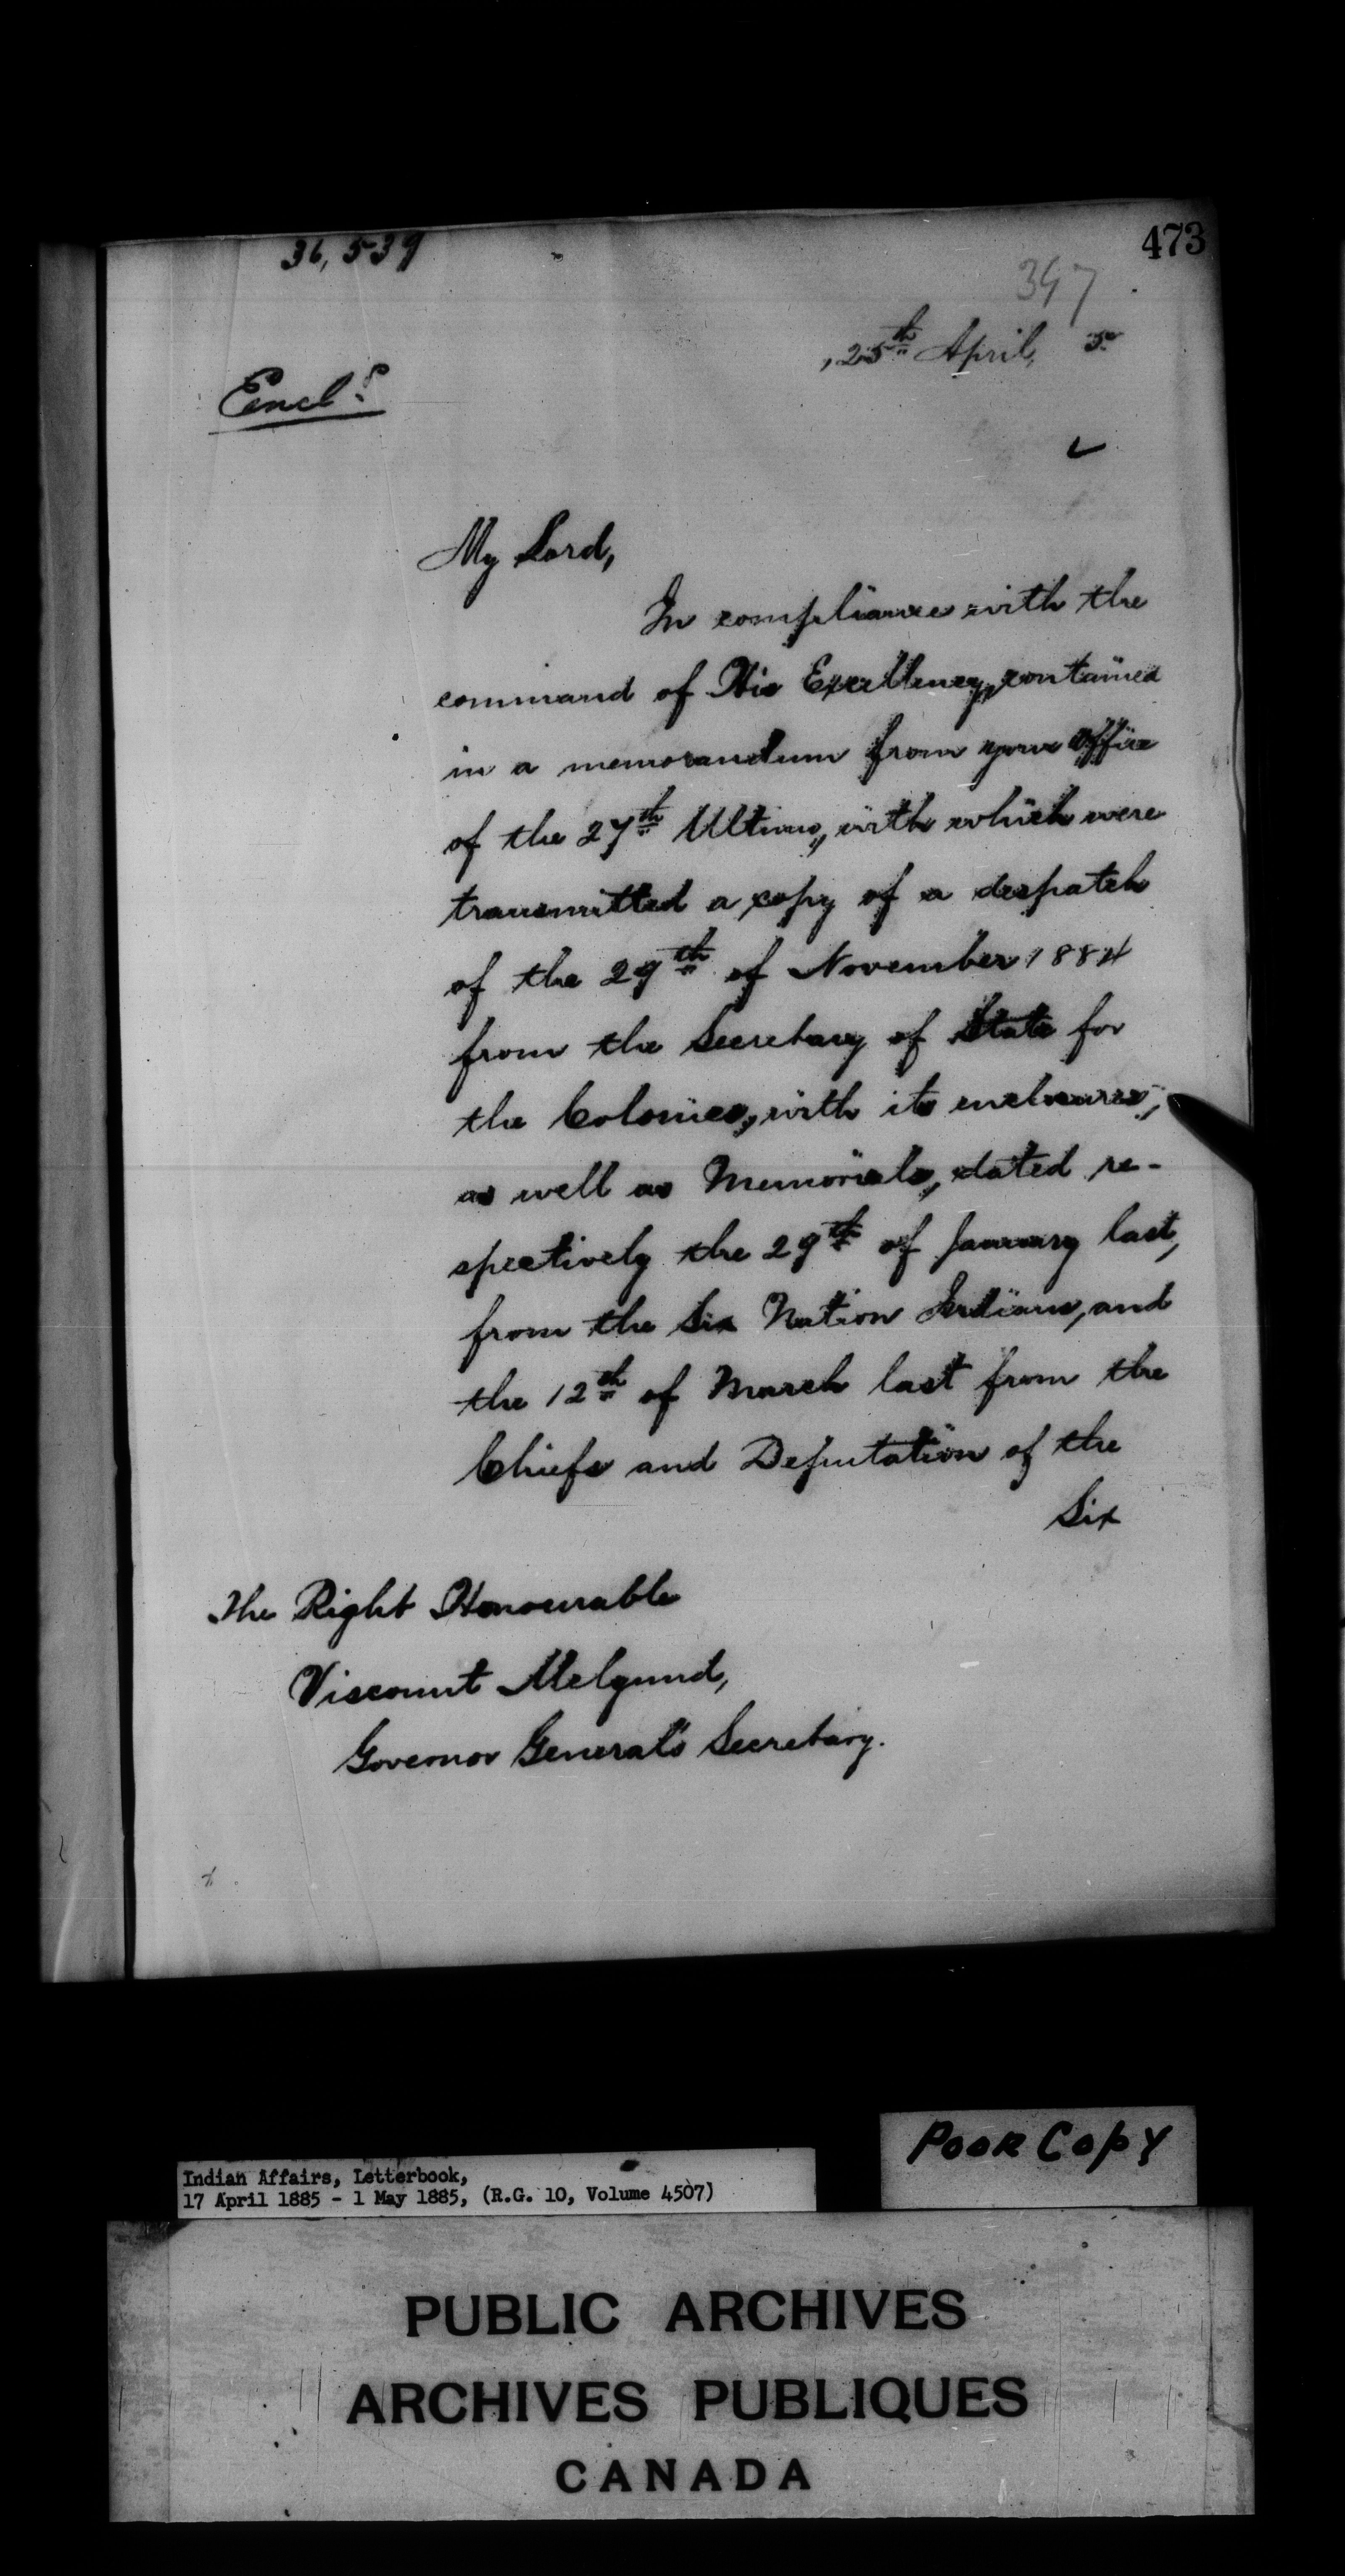 36,539
473
347
, 25th April, 5
Encls
My Lord,
In compliance with the
command of His Excellency, contained
in a memorandum from your Office
of the 27th Ultimo, with which were
transmitted a copy of a despatch
of the 29th of November 1884
from the Secretary of State for
the Colonies, with its enclosures,
as well as Memorials, dated re-
spectively the 29th of January last,
from the Six Nation Indians, and
the 12th of March last from the
Chiefs and Deputation of the
Six
The Right Honourable
Viscount Melgund,
Governor General's Secretary.
Poor Copy
Indian Affairs, Letterbook,
17 April 1885 - 1 May 1885, (R.G. 10, Volume 4507)
PUBLIC ARCHIVES
ARCHIVES PUBLIQUES
CANADA